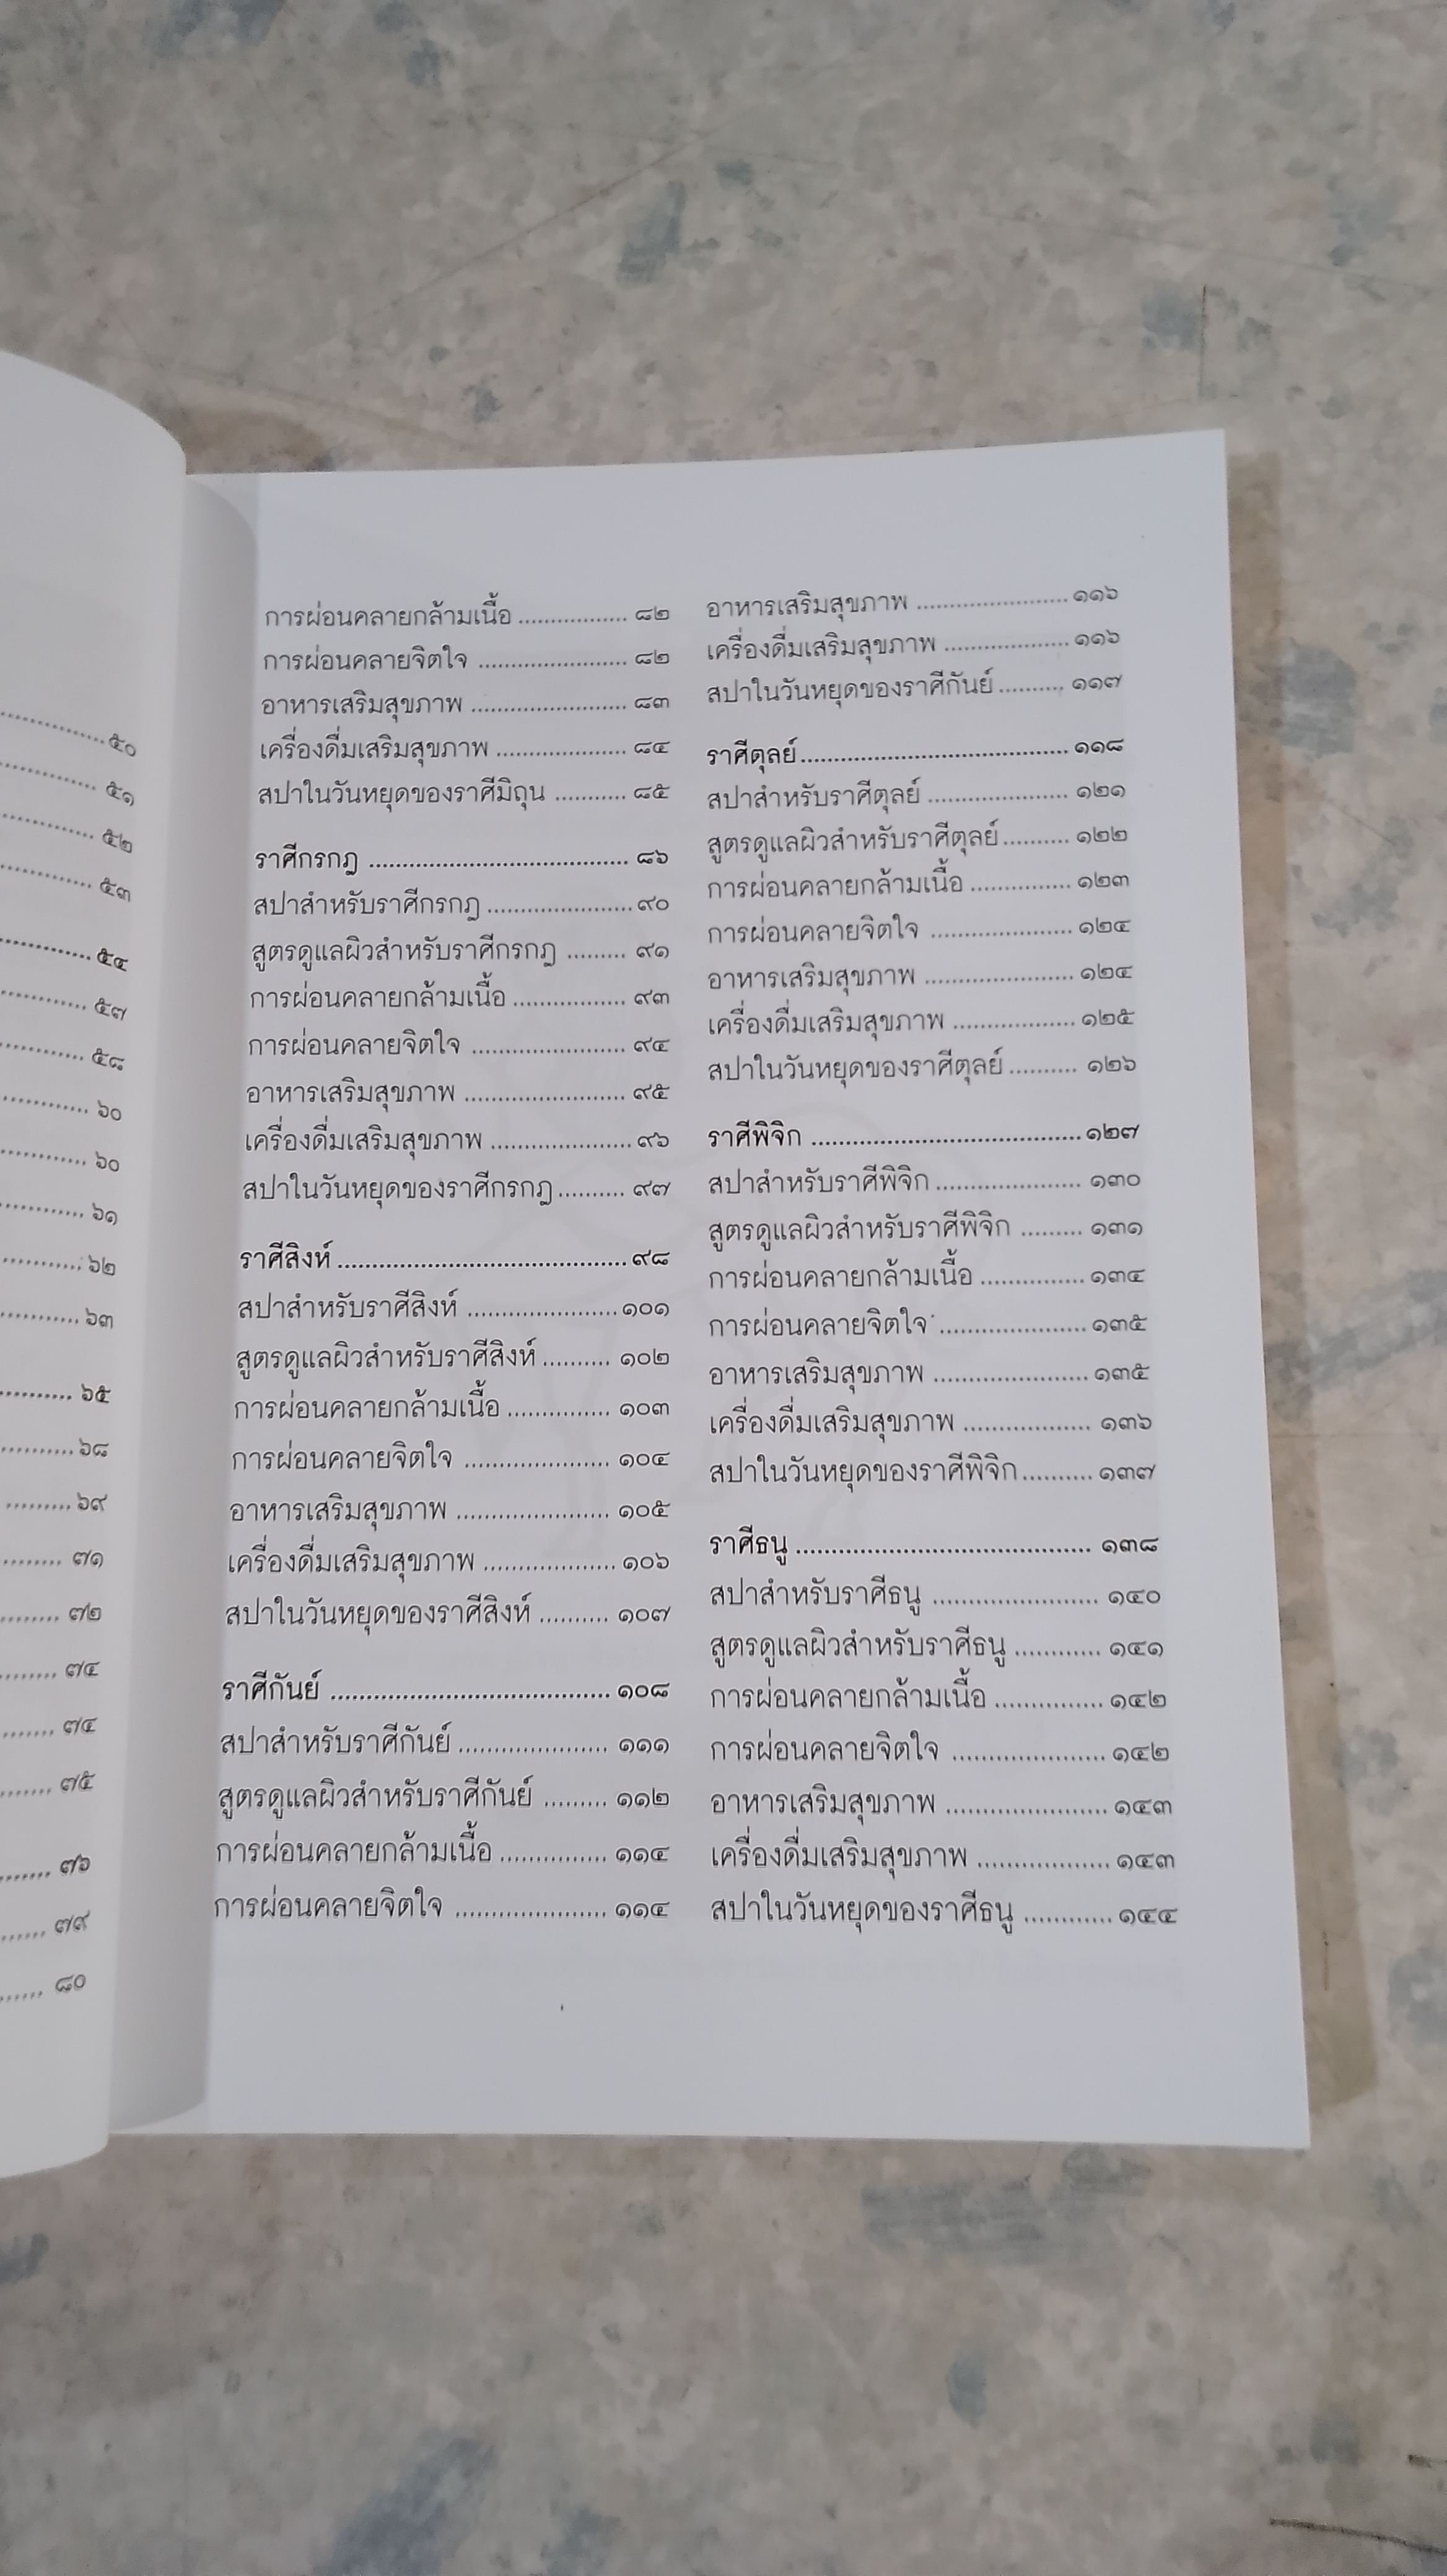 ..........๕๐
..........๕๑
..........๕๒
..........๕๓
..........๕๔
..........๕๗
..........๕๘
..........๖๐
..........๖๐
..........๖๑
..........๖๒
..........๖๓
..........๖๕
..........๖๘
..........๖๙
..........๗๑
..........๗๒
..........๗๔
..........๗๔
..........๗๕
..........๗๖
..........๗๙
..........๘๐
การผ่อนคลายกล้ามเนื้อ ................. ๘๒
การผ่อนคลายจิตใจ ....................... ๘๒
อาหารเสริมสุขภาพ ........................ ๘๓
เครื่องดื่มเสริมสุขภาพ .................... ๘๔
สปาในวันหยุดของราศีมิถุน ........... ๘๕
ราศีกรกฎ ..................................... ๘๖
สปาสำหรับราศีกรกฎ ......................๙๐
สูตรดูแลผิวสำหรับราศีกรกฎ ......... ๙๑
การผ่อนคลายกล้ามเนื้อ ................. ๙๓
การผ่อนคลายจิตใจ ....................... ๙๔
อาหารเสริมสุขภาพ ........................ ๙๕
เครื่องดื่มเสริมสุขภาพ .....................๙๖
สปาในวันหยุดของราศีกรกฎ.......... ๙๗
ราศีสิงห์ ........................................๙๘
สปาสำหรับราศีสิงห์ ......................๑๐๑
สูตรดูแลผิวสำหรับราศีสิงห์.......... ๑๐๒
การผ่อนคลายกล้ามเนื้อ ............... ๑๐๓
การผ่อนคลายจิตใจ ..................... ๑๐๔
อาหารเสริมสุขภาพ ...................... ๑๐๕
เครื่องดื่มเสริมสุขภาพ ...................๑๐๖
สปาในวันหยุดของราศีสิงห์ .......... ๑๐๗
ราศีกันย์ ......................................๑๐๘
สปาสำหรับราศีกันย์ ..................... ๑๑๑
สูตรดูแลผิวสำหรับราศีกันย์ ......... ๑๑๒
การผ่อนคลายกล้ามเนื้อ ............... ๑๑๔
การผ่อนคลายจิตใจ ..................... ๑๑๔
อาหารเสริมสุขภาพ .......................๑๑๖
เครื่องดื่มเสริมสุขภาพ ...................๑๑๖
สปาในวันหยุดของราศีกันย์.......... ๑๑๗
ราศีตุลย์.......................................๑๑๘
สปาสำหรับราศีตุลย์ ..................... ๑๒๑
สูตรดูแลผิวสำหรับราศีตุลย์.......... ๑๒๒
การผ่อนคลายกล้ามเนื้อ ............... ๑๒๓
การผ่อนคลายจิตใจ ..................... ๑๒๔
อาหารเสริมสุขภาพ ...................... ๑๒๔
เครื่องดื่มเสริมสุขภาพ .................. ๑๒๕
สปาในวันหยุดของราศีตุลย์.......... ๑๒๖
ราศีพิจิก ......................................๑๒๗
สปาสำหรับราศีพิจิก ..................... ๑๓๐
สูตรดูแลผิวสำหรับราศีพิจิก ......... ๑๓๑
การผ่อนคลายกล้ามเนื้อ ............... ๑๓๔
การผ่อนคลายจิตใจ ......................๑๓๕
อาหารเสริมสุขภาพ .......................๑๓๕
เครื่องดื่มเสริมสุขภาพ .................. ๑๓๖
สปาในวันหยุดของราศีพิจิก..........๑๓๗
ราศีธนู ........................................ ๑๓๘
สปาสำหรับราศีธนู ....................... ๑๔๐
สูตรดูแลผิวสำหรับราศีธนู ............ ๑๔๑
การผ่อนคลายกล้ามเนื้อ ............... ๑๔๒
การผ่อนคลายจิตใจ ..................... ๑๔๒
อาหารเสริมสุขภาพ ...................... ๑๔๓
เครื่องดื่มเสริมสุขภาพ ...................๑๔๓
สปาในวันหยุดของราศีธนู ............๑๔๔